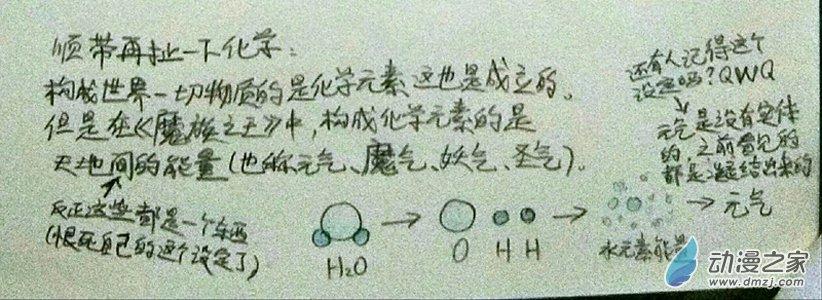 顺带再扯一下化学:
构成世界一切物质的是化学元素这也是成立的。
但是在《魔族之王》中,构成化学元素的是
天地间的能量(也称元气、魔气、妖气、圣气)。
反正这些都是一个东西
(恨死自己的这个设定了)
还有人记得这个
设定吗?QWQ
元气是没有实体
的 之前看见的
都是凝结出来的
H₂O
O H H
水元素能量
元气
动漫之家
www.dmzj.com